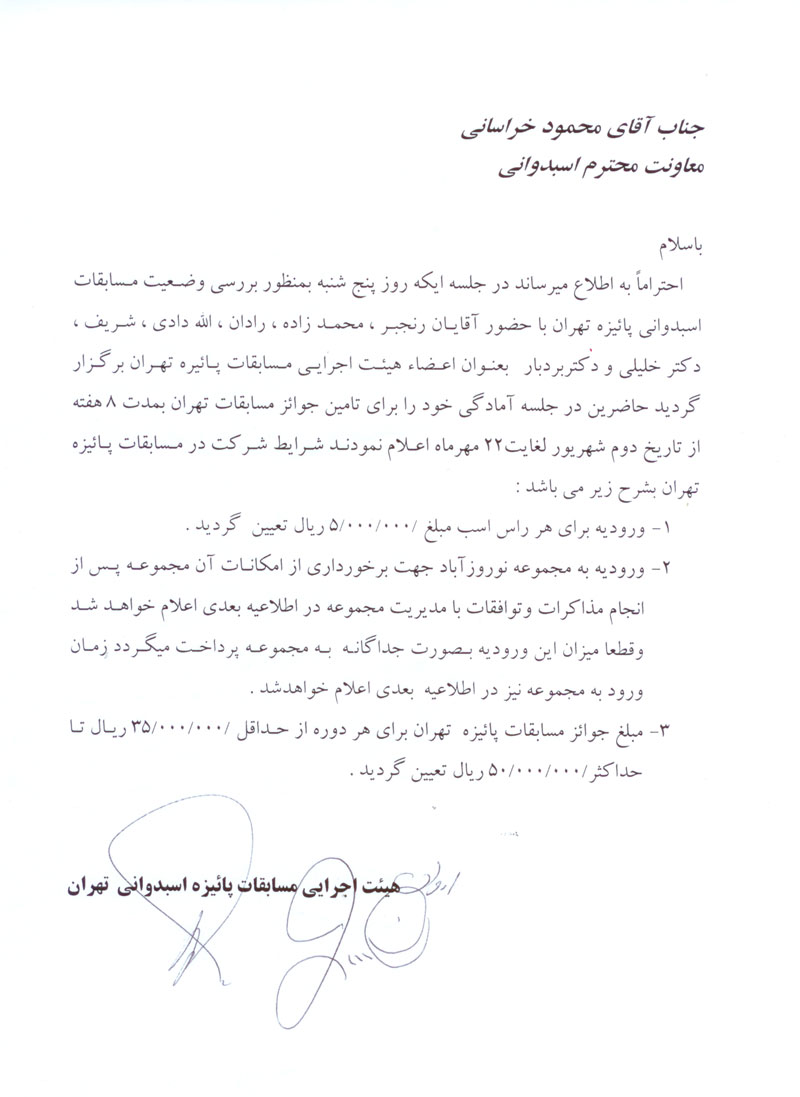 جناب آقای محمود خراسانی
معاونت محترم اسبدوانی
باسلام
احتراماً به اطلاع میرساند در جلسه ایکه روز پنج شنبه بمنظور بررسی وضعیت مسابقات
اسبدوانی پائیزه تهران با حضور آقایان رنجبر ، محمد زاده ، رادان ، الله دادی ، شریف ،
دکتر خلیلی و دکتربردبار بعنوان اعضاء هیئت اجرایی مسابقات پائیره تهران برگزار
گردید حاضرین در جلسه آمادگی خود را برای تامین جوائز مسابقات تهران بمدت ۸ هفته
از تاریخ دوم شهریور لغایت۲۲ مهرماه اعلام نمودند شرایط شرکت در مسابقات پائیزه
تهران بشرح زیر می باشد :
۱- ورودیه برای هر راس اسب مبلغ /۵/۰۰۰/۰۰۰ ریال تعیین گردید .
۲- ورودیه به مجموعه نوروزآباد جهت برخورداری از امکانات آن مجموعه پس از
انجام مذاکرات وتوافقات با مدیریت مجموعه در اطلاعیه بعدی اعلام خواهد شد
وقطعا میزان این ورودیه بصورت جداگانه به مجموعه پرداخت میگردد زمان
ورود به مجموعه نیز در اطلاعیه بعدی اعلام خواهدشد .
۳- مبلغ جوائز مسابقات پائیزه تهران برای هر دوره از حداقل /۳۵/۰۰۰/۰۰۰ ریال تا
حداکثر/۵۰/۰۰۰/۰۰۰ ریال تعیین گردید .
هیئت اجرایی مسابقات پائیزه اسبدوانی تهران